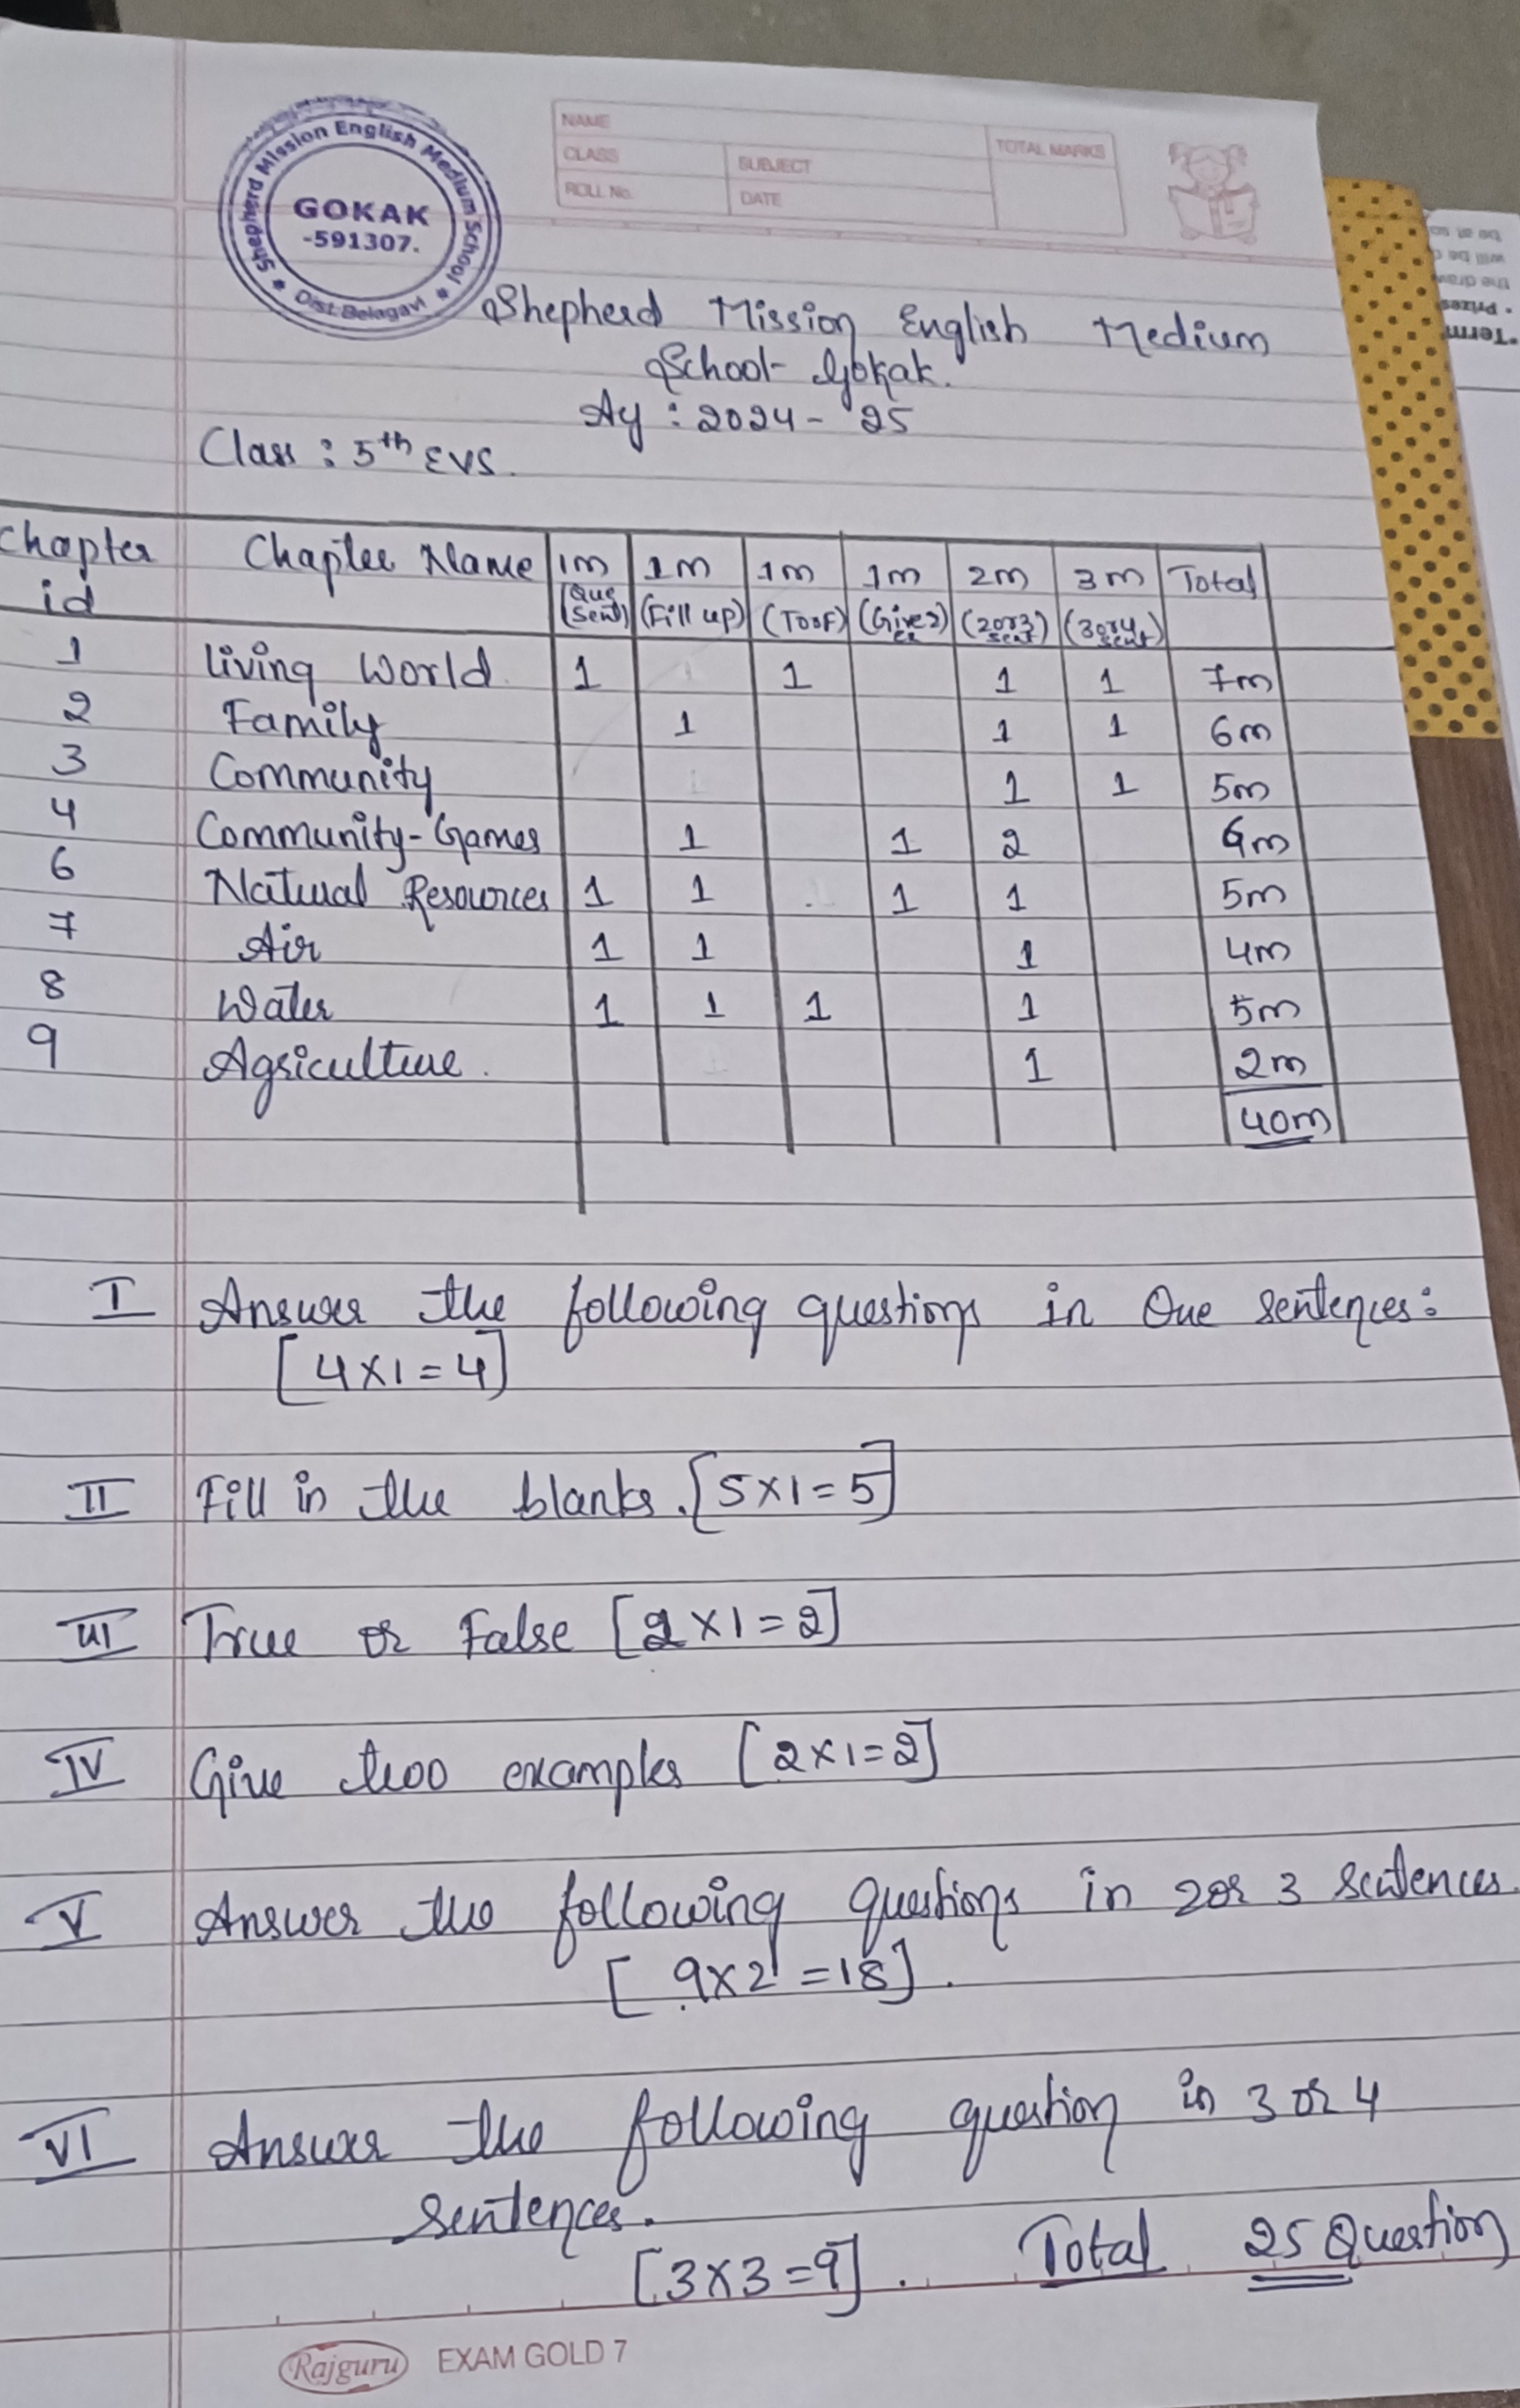 Shepherd Mission English Medium School
GOKAK
-591307.
Dist:Belagavi
NAME
CLASS
SUBJECT
TOTAL MARKS
ROLL No.
DATE
Shepherd Mission English Medium
School Gokak.
Ay : 2024 - 25
Class : 5th EVS.
Chapter id Chapter Name 1m (Que Sent) 1m (Fill up) 1m (TorF) 1m (Give 2 ex) 2m (2or3 sent) 3m (3or4 sent) Total
1 living World 1 1 1 1 7m
2 Family 1 1 1 6m
3 Community 1 1 5m
4 Community-Games 1 1 2 6m
6 Natural Resources 1 1 1 1 5m
7 Air 1 1 1 4m
8 Water 1 1 1 1 5m
9 Agriculture. 1 2m
40m
I Answer the following questions in One sentences:
[4x1=4]
II Fill in the blanks. [5x1=5]
III True or False [2x1=2]
IV Give two examples [2x1=2]
V Answer the following questions in 2or 3 sentences.
[9x2=18].
VI Answer the following question in 3 or 4
sentences.
[3x3=9]. Total 25 Question
Rajguru EXAM GOLD 7
Prizes